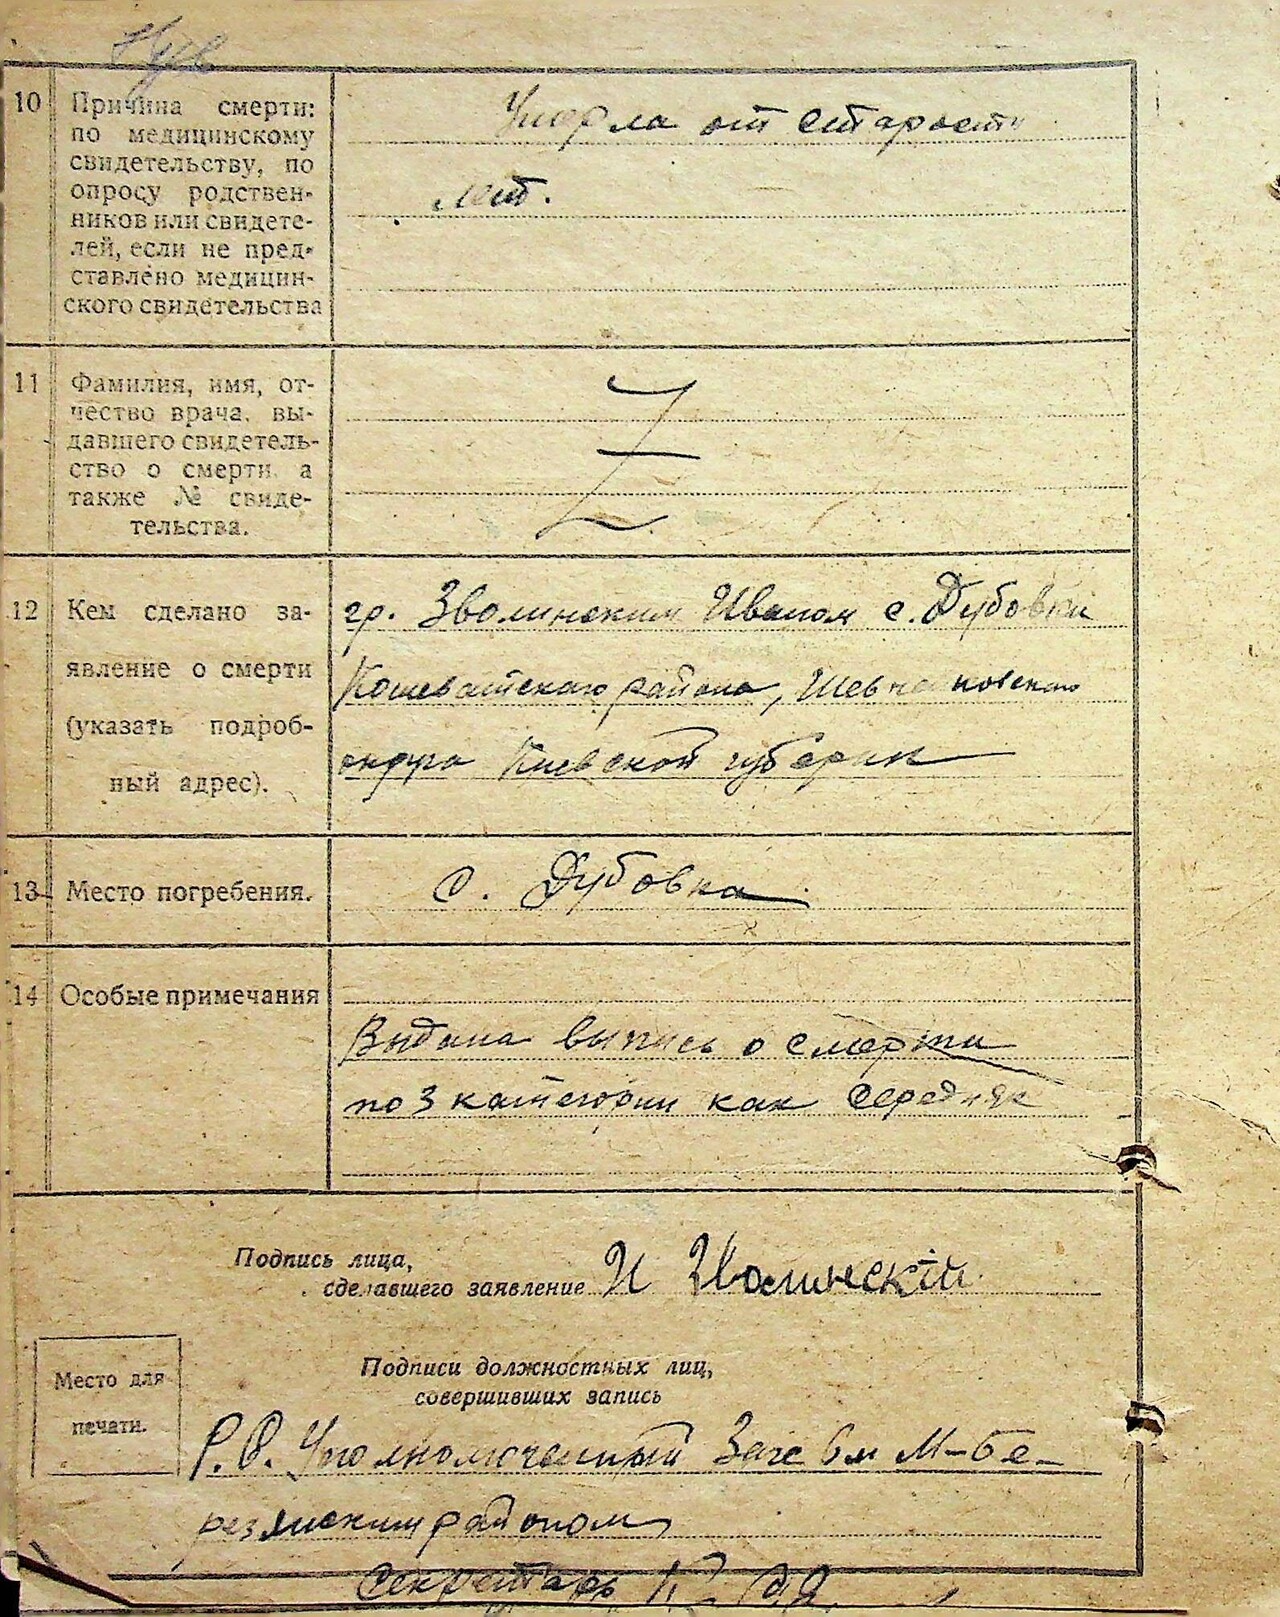 10 Причина смерти:
по медицинскому
свидетельству, по
опросу родствен-
ников или свидете-
лей, если не пред-
ставлено медицин-
ского свидетельства
Умерла от старости
лет.
11 Фамилия, имя, от-
чество врача, вы-
давшего свидетель-
ство о смерти, а
также № свиде-
тельства.
Z
12 Кем сделано за-
явление о смерти
(указать подроб-
ный адрес).
гр. Зволинским Иваном с. Дубовки
Кошеватского района, Шевченковского
округа Киевской губернии
13 Место погребения.
с. Дубовка
14 Особые примечания
Выдана выпись о смерти
по 3 категории как середняк
Подпись лица,
сделавшего заявление И Зволинскій
Место для
печати.
Подписи должностных лиц,
совершивших запись
Уполномоченный Загс 6м М-Бе-
резянским районом
Секретарь